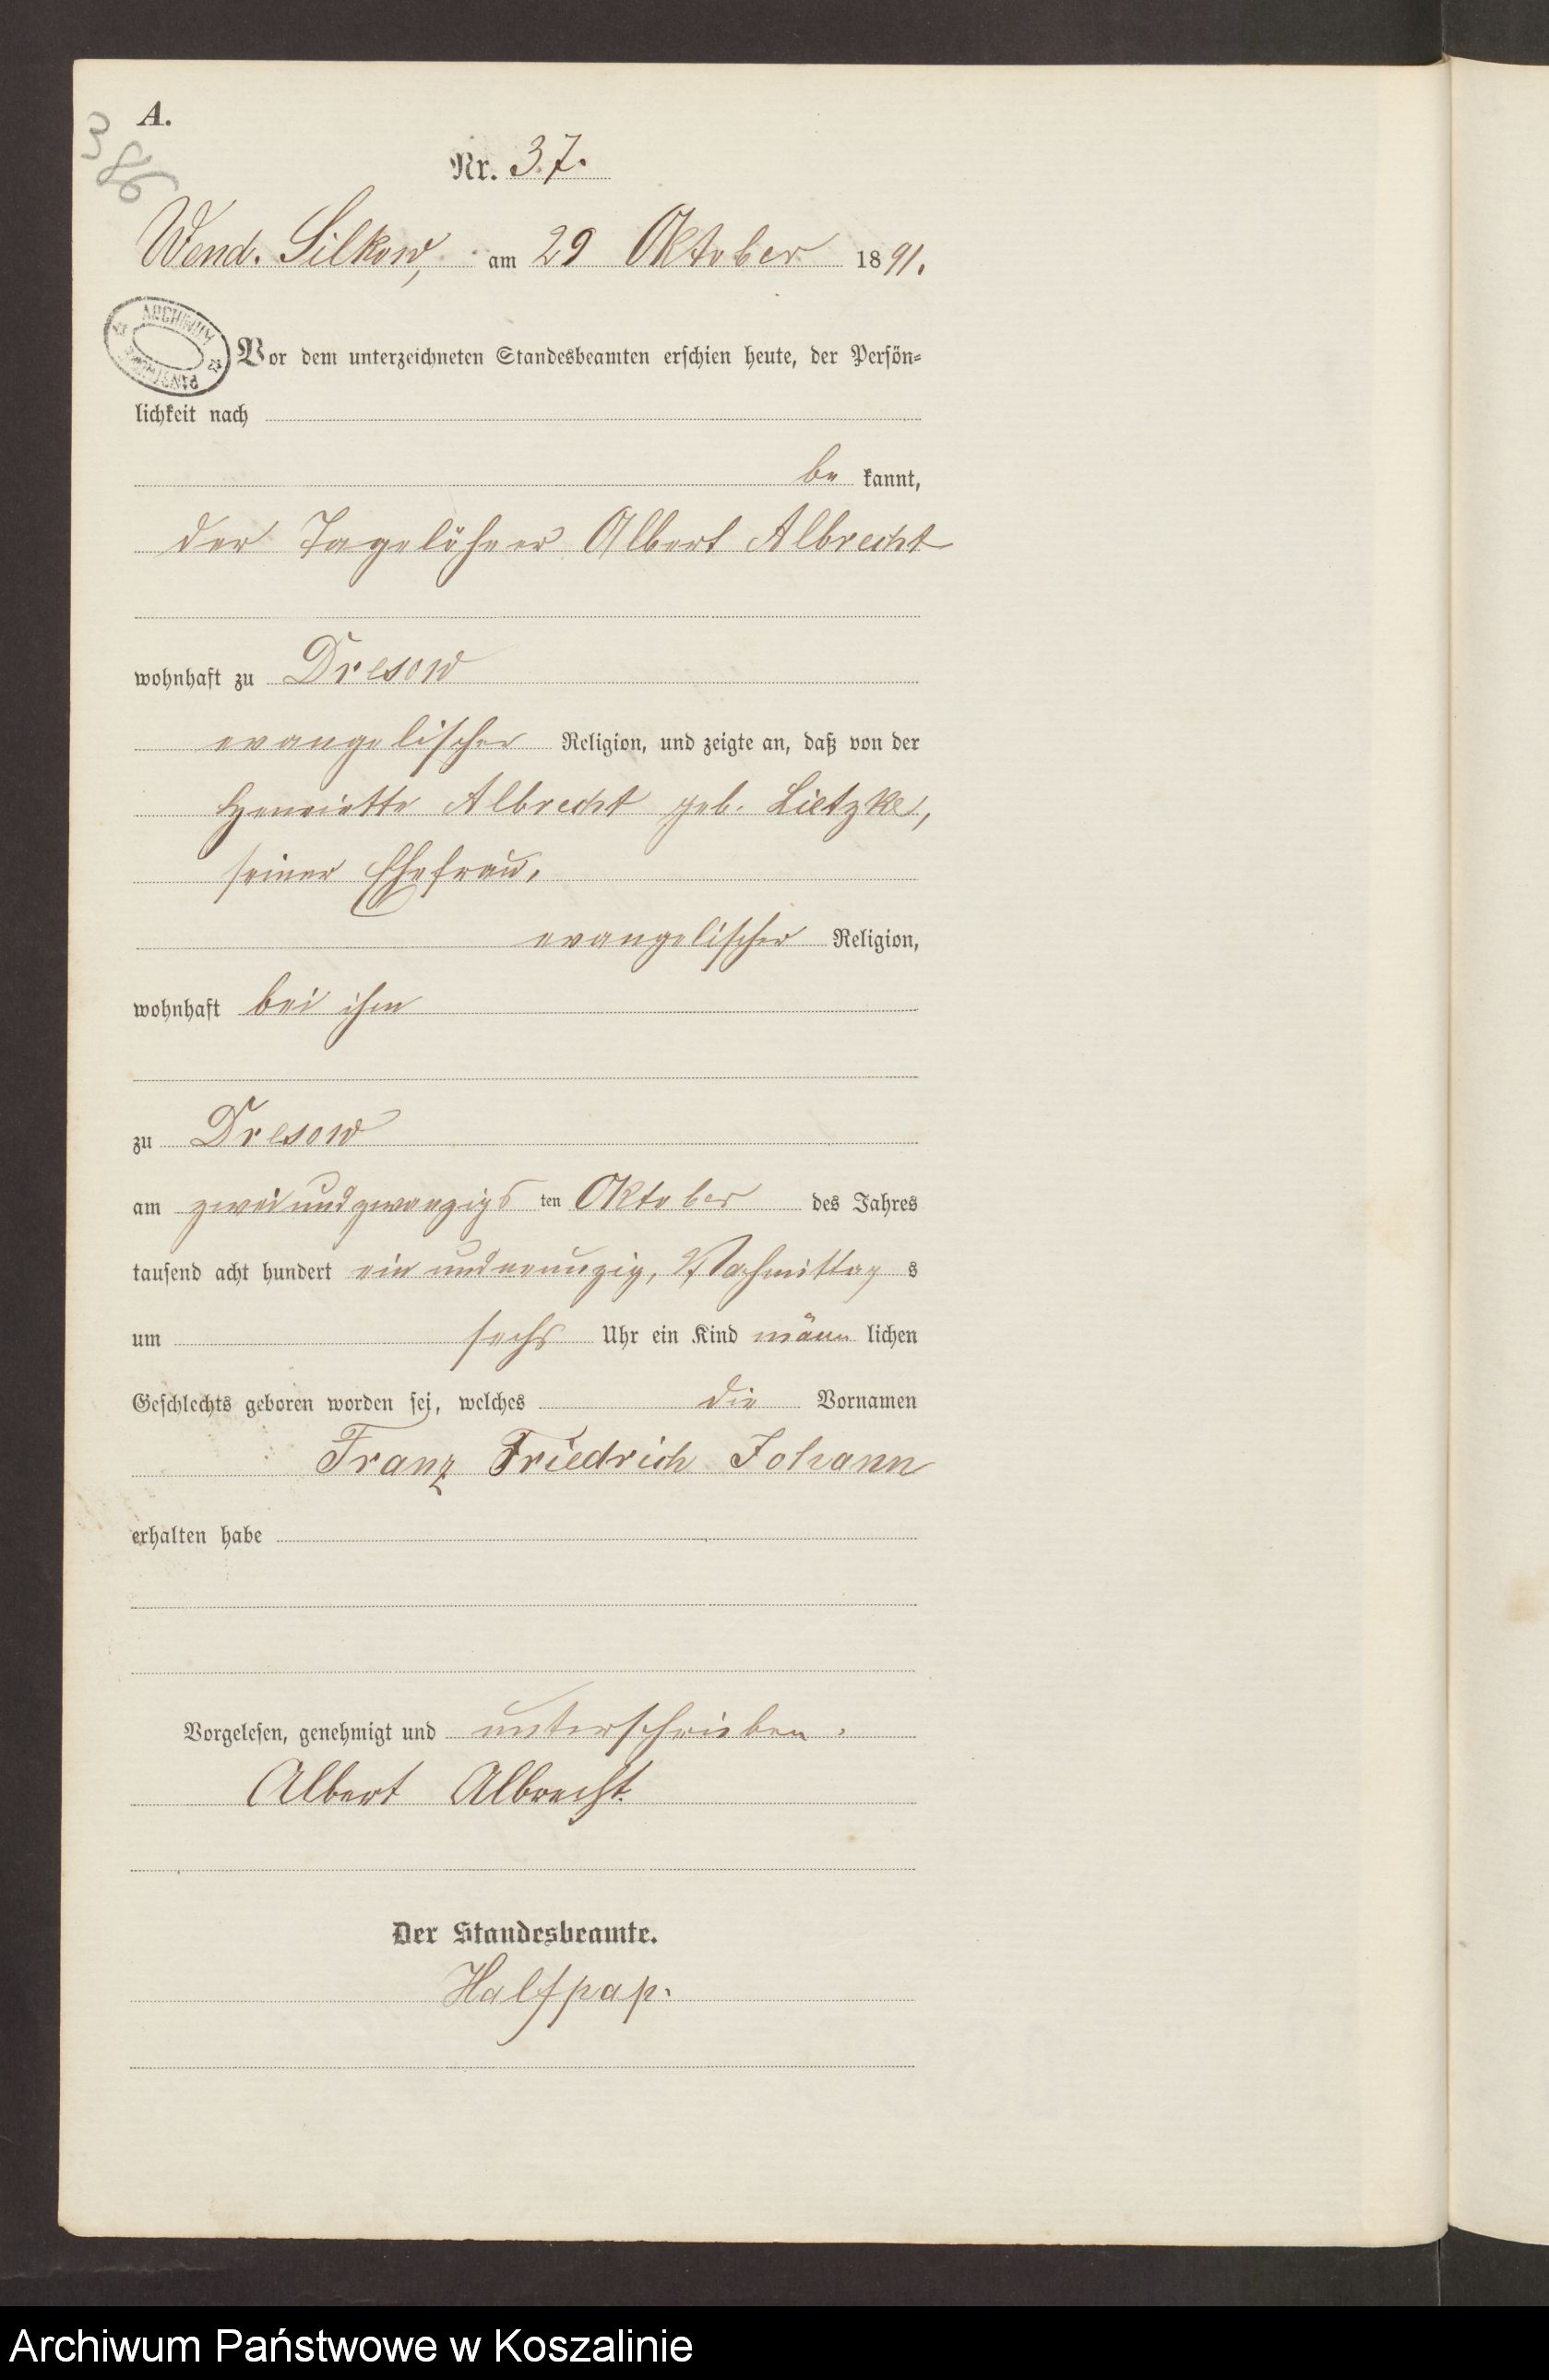 A.
386
Nr. 37.
Wend. Silkow, am 29 Oktober 1891.
ARCHIWUM
Vor dem unterzeichneten Standesbeamten erschien heute, der Persön-
lichkeit nach
be kannt,
der Tagelöhner Albert Albrecht
wohnhaft zu Dresow
evangelischer Religion, und zeigte an, daß von der
Henriette Albrecht geb. Lietzke,
seiner Ehefrau,
evangelischer Religion,
wohnhaft bei ihm
zu Dresow
am zweiundzwanzigs ten Oktober des Jahres
tausend acht hundert ein und neunzig, Nachmittag s
um sechs Uhr ein Kind männ lichen
Geschlechts geboren worden sei, welches die Vornamen
Franz Friedrich Johann
erhalten habe
Vorgelesen, genehmigt und unterschrieben.
Albert Albrecht.
Der Standesbeamte.
Halfpap.
Archiwum Państwowe w Koszalinie